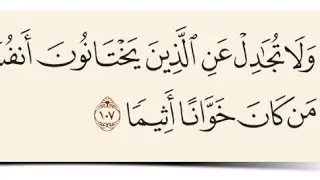 وَلَا تُجَٰدِلْ عَنِ ٱلَّذِينَ يَخْتَانُونَ
مَن كَانَ خَوَّانًا أَثِيمًا ١٠٧